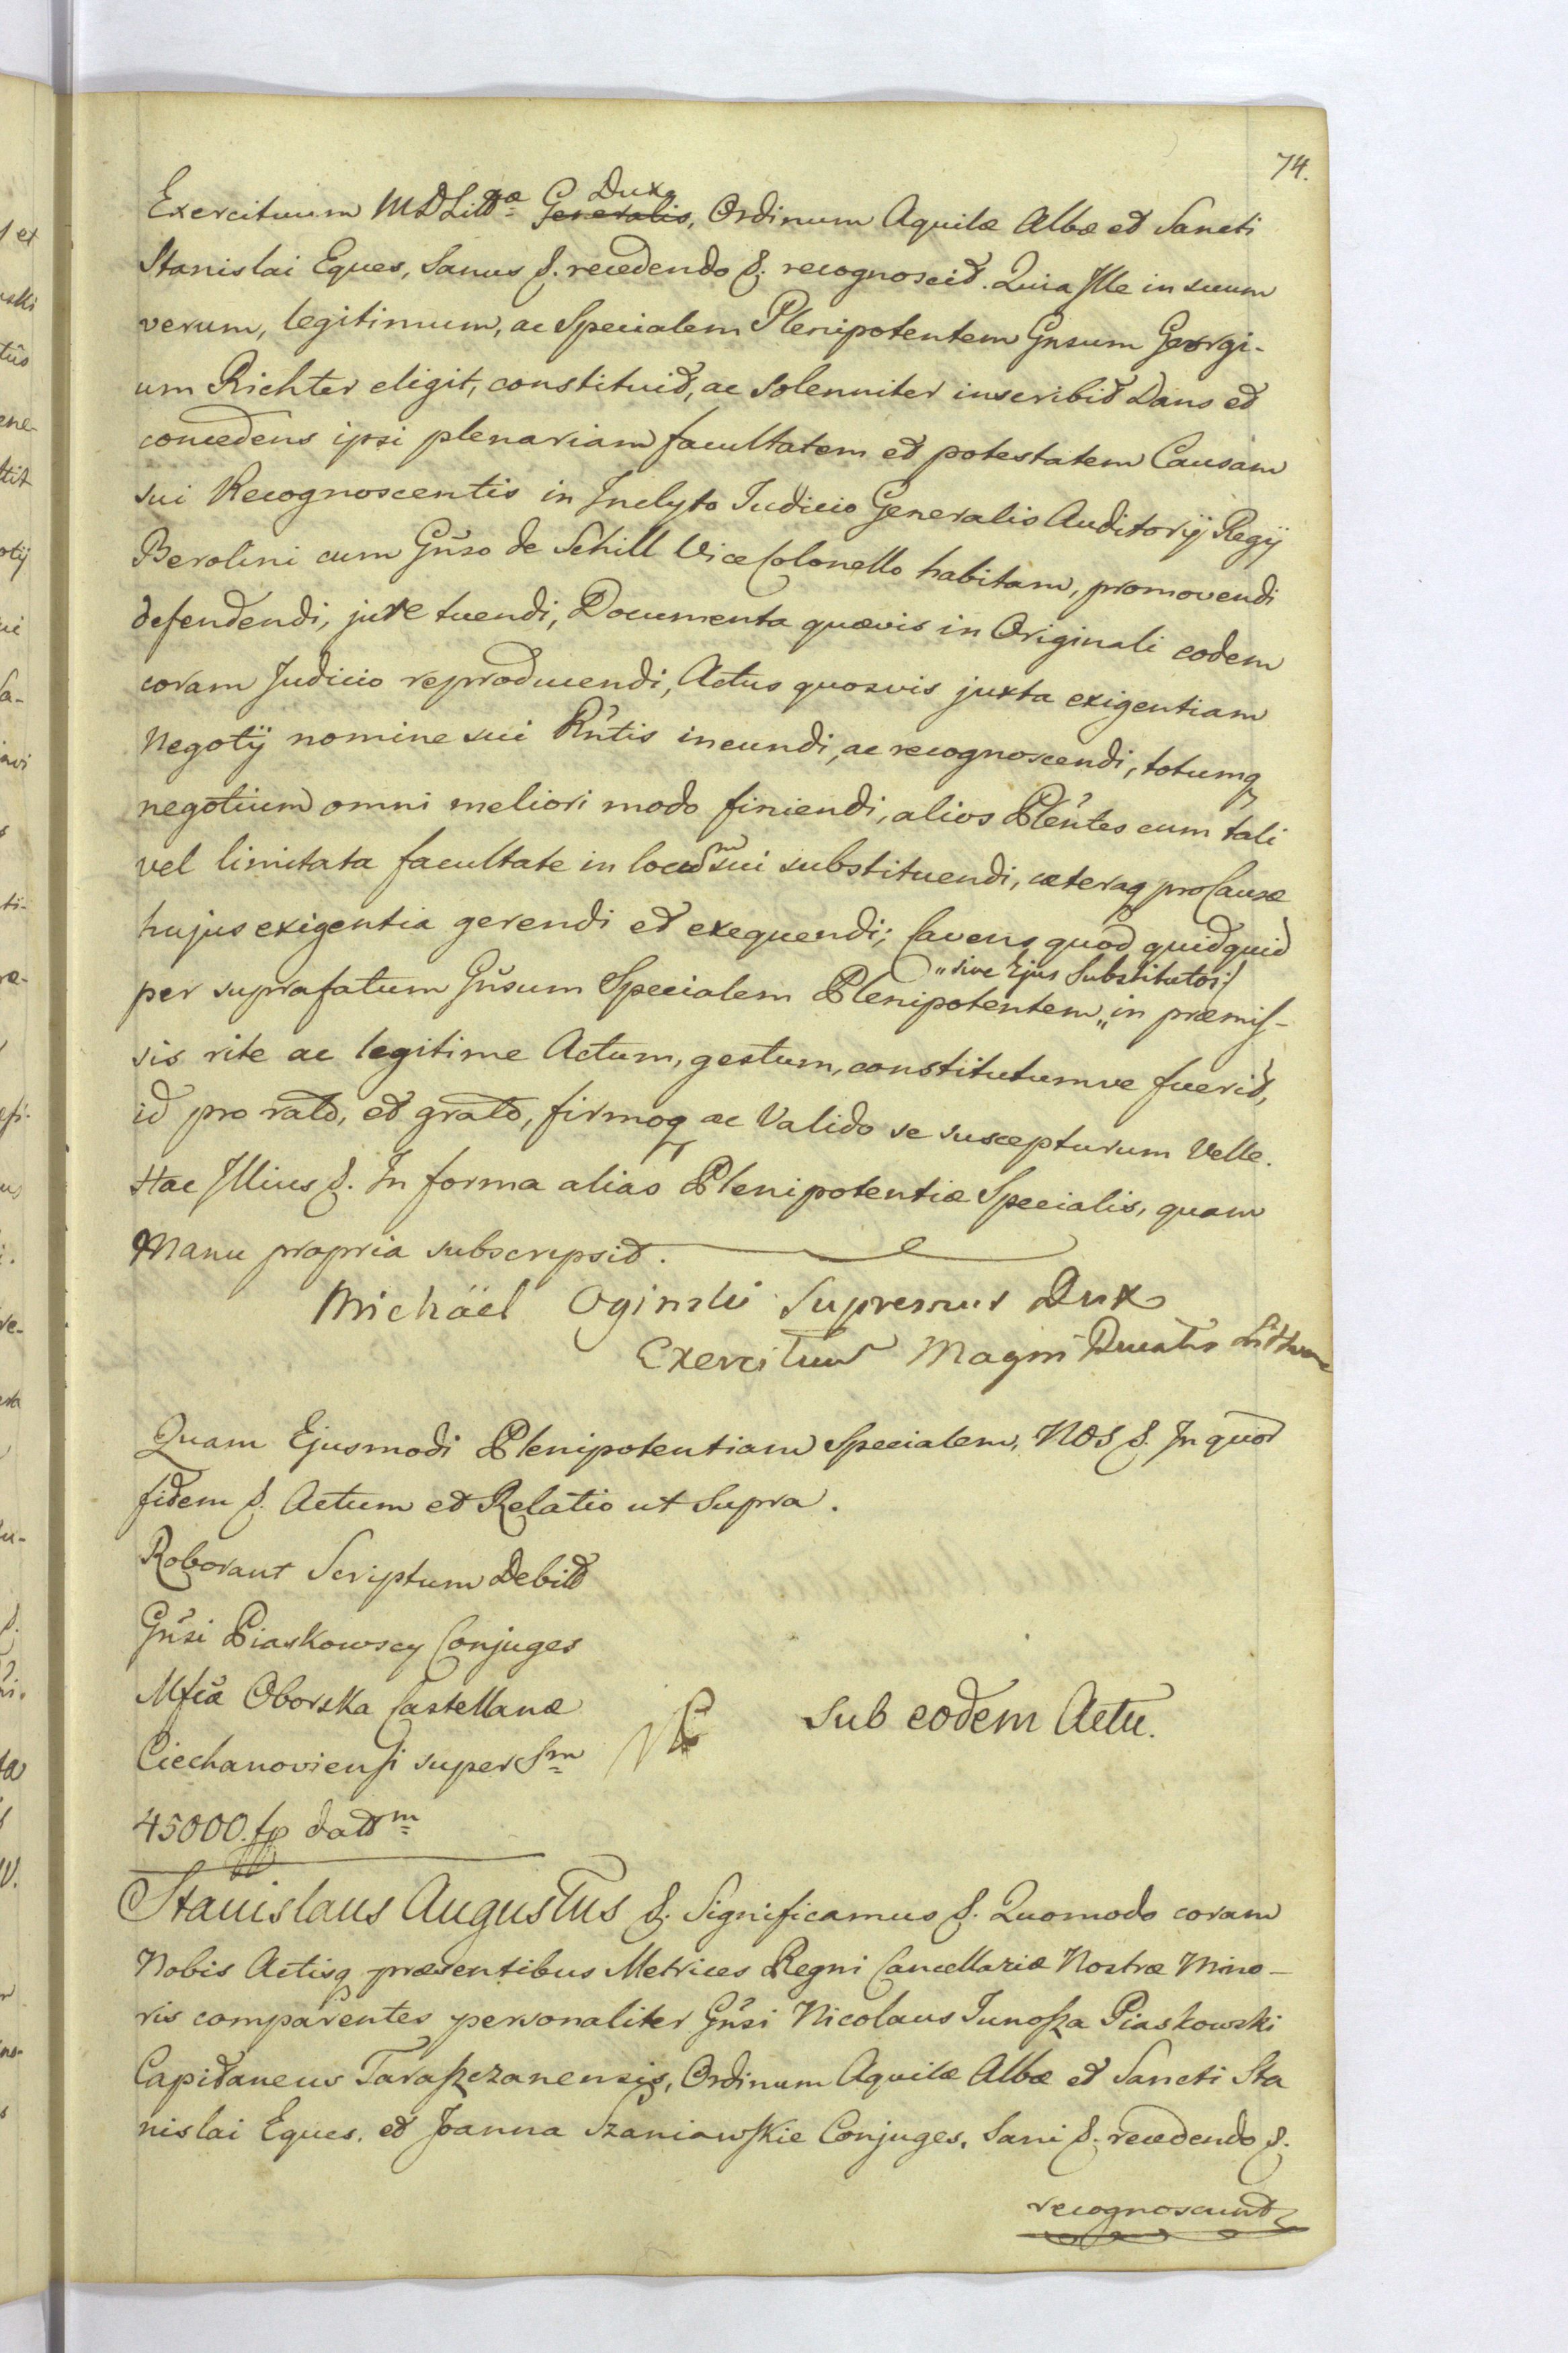 74.
Exercituum MDLittæ Generalis Dux, Ordinum Aquilæ Albæ et Sancti
Stanislai Eques, Sanus &. recedendo &. recognoscit. Quia Ille in suum
verum, legitimum, ac Specialem Plenipotentem Gnsum Georgi-
um Richter eligit, constituit, ac solenniter inscribit Dans et
concedens ipsi plenariam facultatem et potestatem Causam
sui Recognoscentis in Inclyto Iudicio Generalis Auditorij Regij
Berolini cum Gnso de Schill ViceColonello habitam, promovendi
defendendi, jure tuendi, Documenta quævis in Originali eodem
coram Judicio reproducendi, Actus quosvis juxta exigentiam
Negotij nomine sui Rntis ineundi, ac recognoscendi, totumq
negotium omni meliori modo finiendi, alios Plentes cum tali
vel limitata facultate in locum sui substituendi, cæteraq pro Causæ
hujus exigentia gerendi et exequendi; Cavens quod quidquid
per suprafatum Gnsum Specialem Plenipotentem „ sive Ejus Substitutos „ in præmis-
sis rite ac legitime Actum, gestum, constitutumve fuerit,
id pro rato, et grato, firmoq ac Valido se suscepturum Velle.
Hac Illius &. In forma alias Plenipotentiæ Specialis, quam
Manu propria subscripsit.
Michäel Oginski Supremus Dux
Exercituum Magni Ducatus
Quam Ejusmodi Plenipotentiam Specialem, NOS &. In quor
fidem &. Actum et Relatio ut Supra.
Roborant Scriptum Debitt
Gnsi Piaskowscy Conjuges
Mfcæ Oborska Castellanæ
Ciechanoviensi super Sm
45000. fp dattm
Sub eodem Actu.
Stanislaus Augustus &. Significamus &. Quomodo coram
Nobis Actisq præsentibus Metrices Regni Cancellariæ Nostræ Mino-
ris comparentes personaliter Gnsi Nicolaus Junosza Piaskowski
Capitaneus Taraszczanensis, Ordinum Aquilæ Albæ et Sancti Sta
nislai Eques. et Joanna Szaniawskie Conjuges. Sani &. recedendo &.
recognoscunt